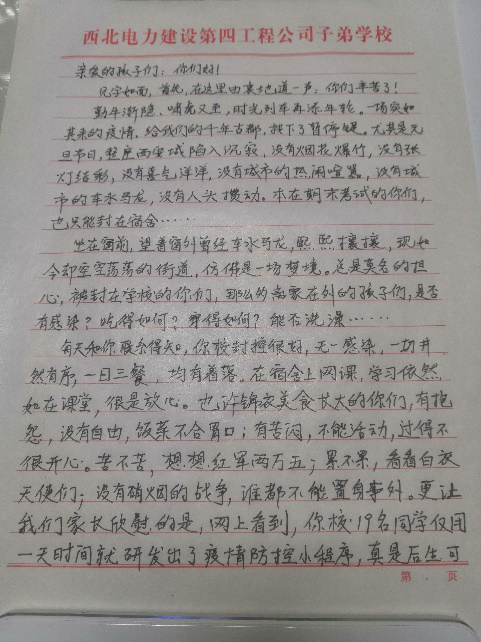 西北电力建设第四工程公司子弟学校
亲爱的孩子们：你们好！
见字如面，首先，在这里由衷地道一声：你们辛苦了！
勤牛渐隐，啸虎又至，时光列车再添年轮。一场突如
其来的疫情，给我们的千年古都，摁下了暂停键。尤其是元
旦节日，整座西安城陷入沉寂，没有烟花爆竹，没有张
灯结彩，没有喜气洋洋，没有城市的热闹喧嚣，没有城
市的车水马龙，没有人头攒动。本在期末考试的你们，
也只能封在宿舍……
坐在窗前，望着窗外曾经车水马龙，熙熙攘攘，现如
今却空空荡荡的街道，仿佛是一场梦境。总是莫名的担
心，被封在学校的你们，那么的离家在外的孩子们，是否
有感染？吃得如何？穿得如何？能否洗澡……
每天和你联系得知，你校封控很好，无一感染，一切井
然有序，一日三餐，均有着落。在宿舍上网课，学习依然
如在课堂，很是放心。也许锦衣美食长大的你们，有抱
怨，没有自由，饭菜不合胃口；有苦闷，不能活动，过得不
很开心。苦不苦，想想红军两万五；累不累，看看白衣
天使们；没有硝烟的战争，谁都不能置身事外。更让
我们家长欣慰的是，网上看到，你校19名同学仅用
一天时间就研发出了疫情防控小程序，真是后生可
第 页